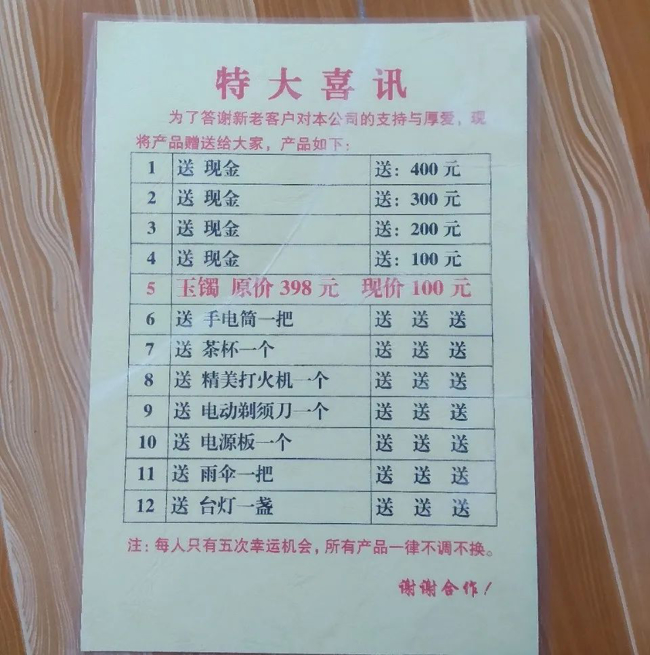 特大喜讯
为了答谢新老客户对本公司的支持与厚爱，现
将产品赠送给大家，产品如下：
1 送 现金 送：400 元
2 送 现金 送：300 元
3 送 现金 送：200 元
4 送 现金 送：100 元
5 玉镯 原价 398 元 现价 100 元
6 送 手电筒一把 送 送 送
7 送 茶杯一个 送 送 送
8 送 精美打火机一个 送 送 送
9 送 电动剃须刀一个 送 送 送
10 送 电源板一个 送 送 送
11 送 雨伞一把 送 送 送
12 送 台灯一盏 送 送 送
注：每人只有五次幸运机会，所有产品一律不调不换。
谢谢合作！